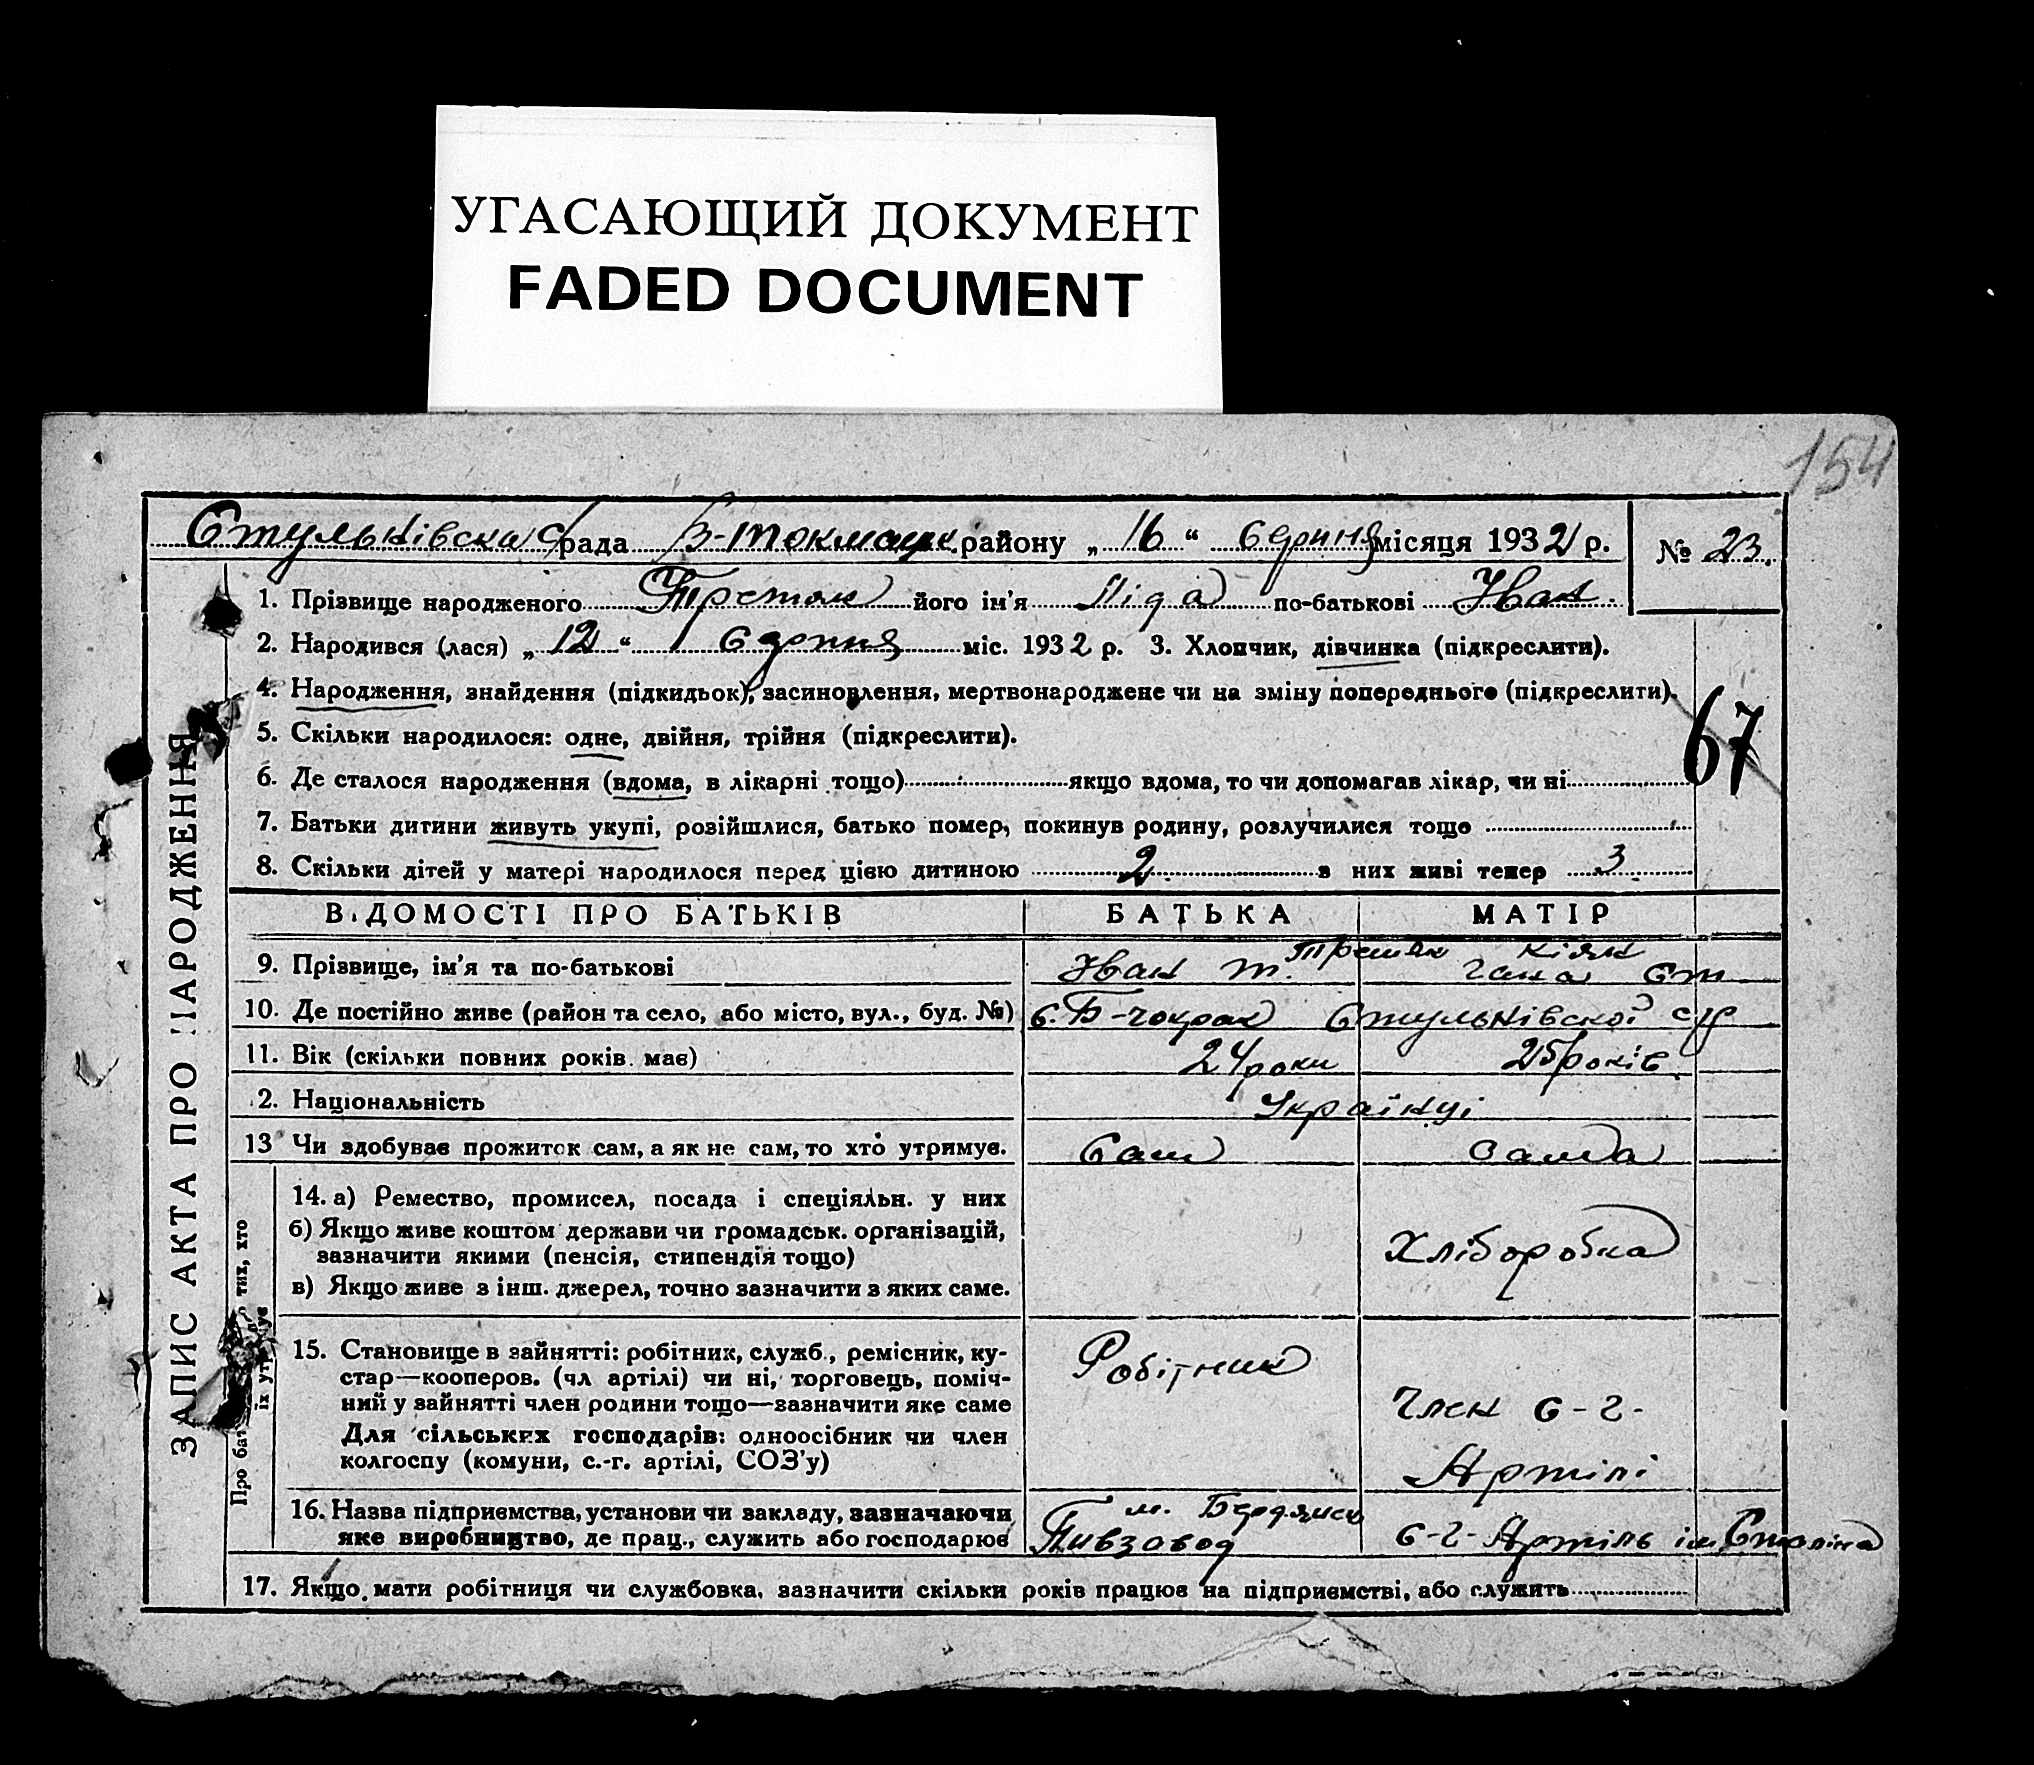 УГАСАЮЩИЙ ДОКУМЕНТ
FADED DOCUMENT
154
Стульнівська с/рада Б-Токмацьк. району „16“ серпня місяця 1932 р. № 23.
1. Прізвище народженого Третяк його ім'я Ліда по-батькові Іван.
2. Народився (лася) „12“ серпня міс. 1932 р. 3. Хлопчик, дівчинка (підкреслити).
4. Народження, знайдення (підкидьок), засиновлення, мертвонароджене чи на зміну попереднього (підкреслити).
67
5. Скільки народилося: одне, двійня, трійня (підкреслити).
6. Де сталося народження (вдома, в лікарні тощо) якщо вдома, то чи допомагав лікар, чи ні
7. Батьки дитини живуть укупі, розійшлися, батько помер, покинув родину, розлучилися тощо
8. Скільки дітей у матері народилося перед цією дитиною 2. з них живі тепер 3.
ЗАПИС АКТА ПРО НАРОДЖЕННЯ
ВІДОМОСТІ ПРО БАТЬКІВ БАТЬКА МАТІР
9. Прізвище, ім'я та по-батькові Третяк Іван Т.
10. Де постійно живе (район та село, або місто, вул., буд. №) с. Б-Чокрак Стульнівської с/р
11. Вік (скільки повних років має) 24 роки 25 років.
2. Національність Українці
13 Чи здобуває прожиток сам, а як не сам, то хто утримує. Сам Сама
14. а) Ремество, промисел, посада і спеціяльн. у них
б) Якщо живе коштом держави чи громадськ. організацій,
зазначити якими (пенсія, стипендія тощо) Хліборобка
в) Якщо живе з інш. джерел, точно зазначити з яких саме.
Про бат тих, хто
їх ут ує
15. Становище в зайнятті: робітник, служб., ремісник, ку- Робітник
стар—кооперов. (чл артілі) чи ні, торговець, поміч-
ний у зайнятті член родини тощо—зазначити яке саме Член с-г-
Для сільських господарів: одноосібник чи член
колгоспу (комуни, с.-г. артілі, СОЗ'у) Артілі
16. Назва підприємства, установи чи закладу, зазначаючи м. Бердянск
яке виробництво, де прац., служить або господарює Пивзавод с-г Артіль ім Сталіна
17. Якщо мати робітниця чи службовка, зазначити скільки років працює на підприємстві, або служить